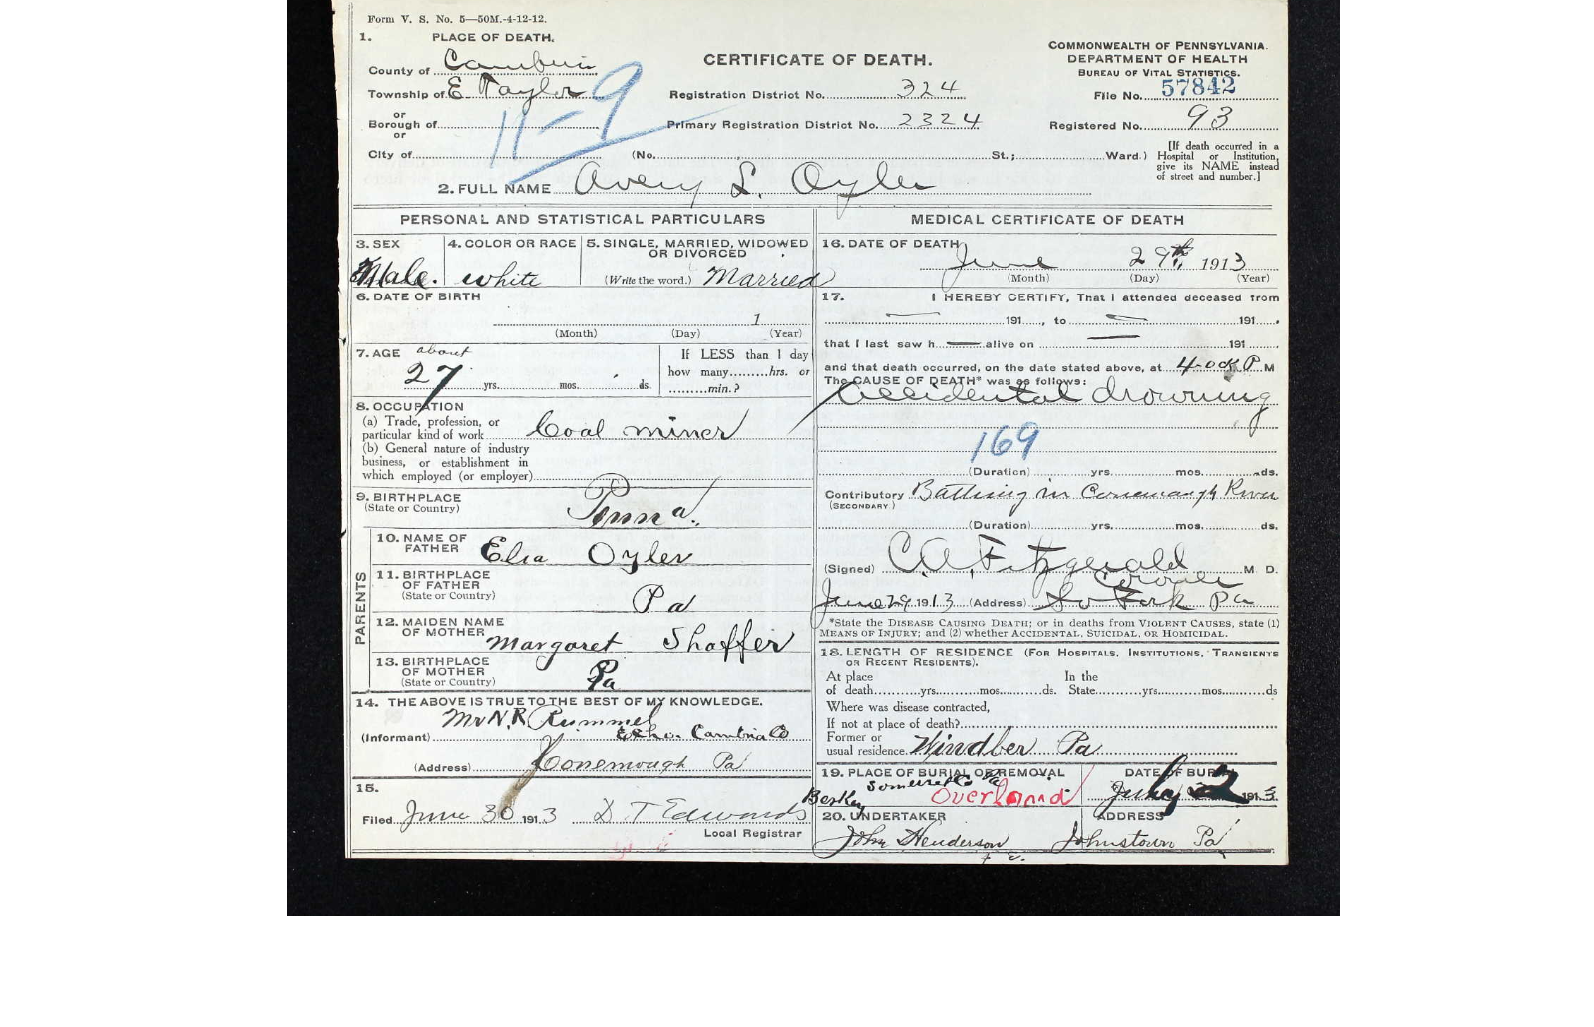 Form V. S. No. 5—50M.-4-12-12.
1. PLACE OF DEATH.
County of Cambria
Township of E Taylor
or
Borough of
or
City of
11-9
CERTIFICATE OF DEATH.
Registration District No. 324
Primary Registration District No. 2324
(No. St.; Ward.)
COMMONWEALTH OF PENNSYLVANIA.
DEPARTMENT OF HEALTH
BUREAU OF VITAL STATISTICS.
File No. 57842
Registered No. 93
[If death occurred in a
Hospital or Institution,
give its NAME instead
of street and number.]
2. FULL NAME Avery L. Oyler
PERSONAL AND STATISTICAL PARTICULARS
3. SEX
Male.
4. COLOR OR RACE
white
5. SINGLE, MARRIED, WIDOWED
OR DIVORCED
(Write the word.) Married
6. DATE OF BIRTH
1
(Month) (Day) (Year)
7. AGE about
27 yrs. mos. ds.
If LESS than 1 day
how many hrs. or
min.?
8. OCCUPATION
(a) Trade, profession, or
particular kind of work Coal miner
(b) General nature of industry
business, or establishment in
which employed (or employer)
9. BIRTHPLACE
(State or Country) Penna.
PARENTS
10. NAME OF
FATHER Elia Oyler
11. BIRTHPLACE
OF FATHER
(State or Country) Pa
12. MAIDEN NAME
OF MOTHER Margaret Shaffer
13. BIRTHPLACE
OF MOTHER
(State or Country) Pa
14. THE ABOVE IS TRUE TO THE BEST OF MY KNOWLEDGE.
(Informant) Mr N.R Rummel
Echo. Cambria Co
(Address) Conemough Pa
15.
Filed June 30 1913 D T Edwards
Local Registrar
MEDICAL CERTIFICATE OF DEATH
16. DATE OF DEATH
June 29th 1913
(Month) (Day) (Year)
17. I HEREBY CERTIFY, That I attended deceased from
— 191 , to — 191 .
that I last saw h — alive on — 191
and that death occurred, on the date stated above, at 4-ock P. M
The CAUSE OF DEATH* was as follows:
Accidental drowning
169
(Duration) yrs. mos. ds.
Contributory Bathing in Conemaugh River
(SECONDARY)
(Duration) yrs. mos. ds.
(Signed) CA Fitzgerald M. D.
Coroner
June 29 1913 (Address) So Fork Pa
*State the DISEASE CAUSING DEATH; or in deaths from VIOLENT CAUSES, state (1)
MEANS OF INJURY; and (2) whether ACCIDENTAL, SUICIDAL, OR HOMICIDAL.
18. LENGTH OF RESIDENCE (FOR HOSPITALS, INSTITUTIONS, TRANSIENTS
OR RECENT RESIDENTS).
At place In the
of death yrs. mos. ds. State yrs. mos. ds
Where was disease contracted,
If not at place of death?
Former or
usual residence. Windber Pa
19. PLACE OF BURIAL OR REMOVAL
Somerset Co Pa
Berkey Overland
DATE OF BURIAL
July 2 1913
20. UNDERTAKER
John Henderson
ADDRESS
Johnstown Pa